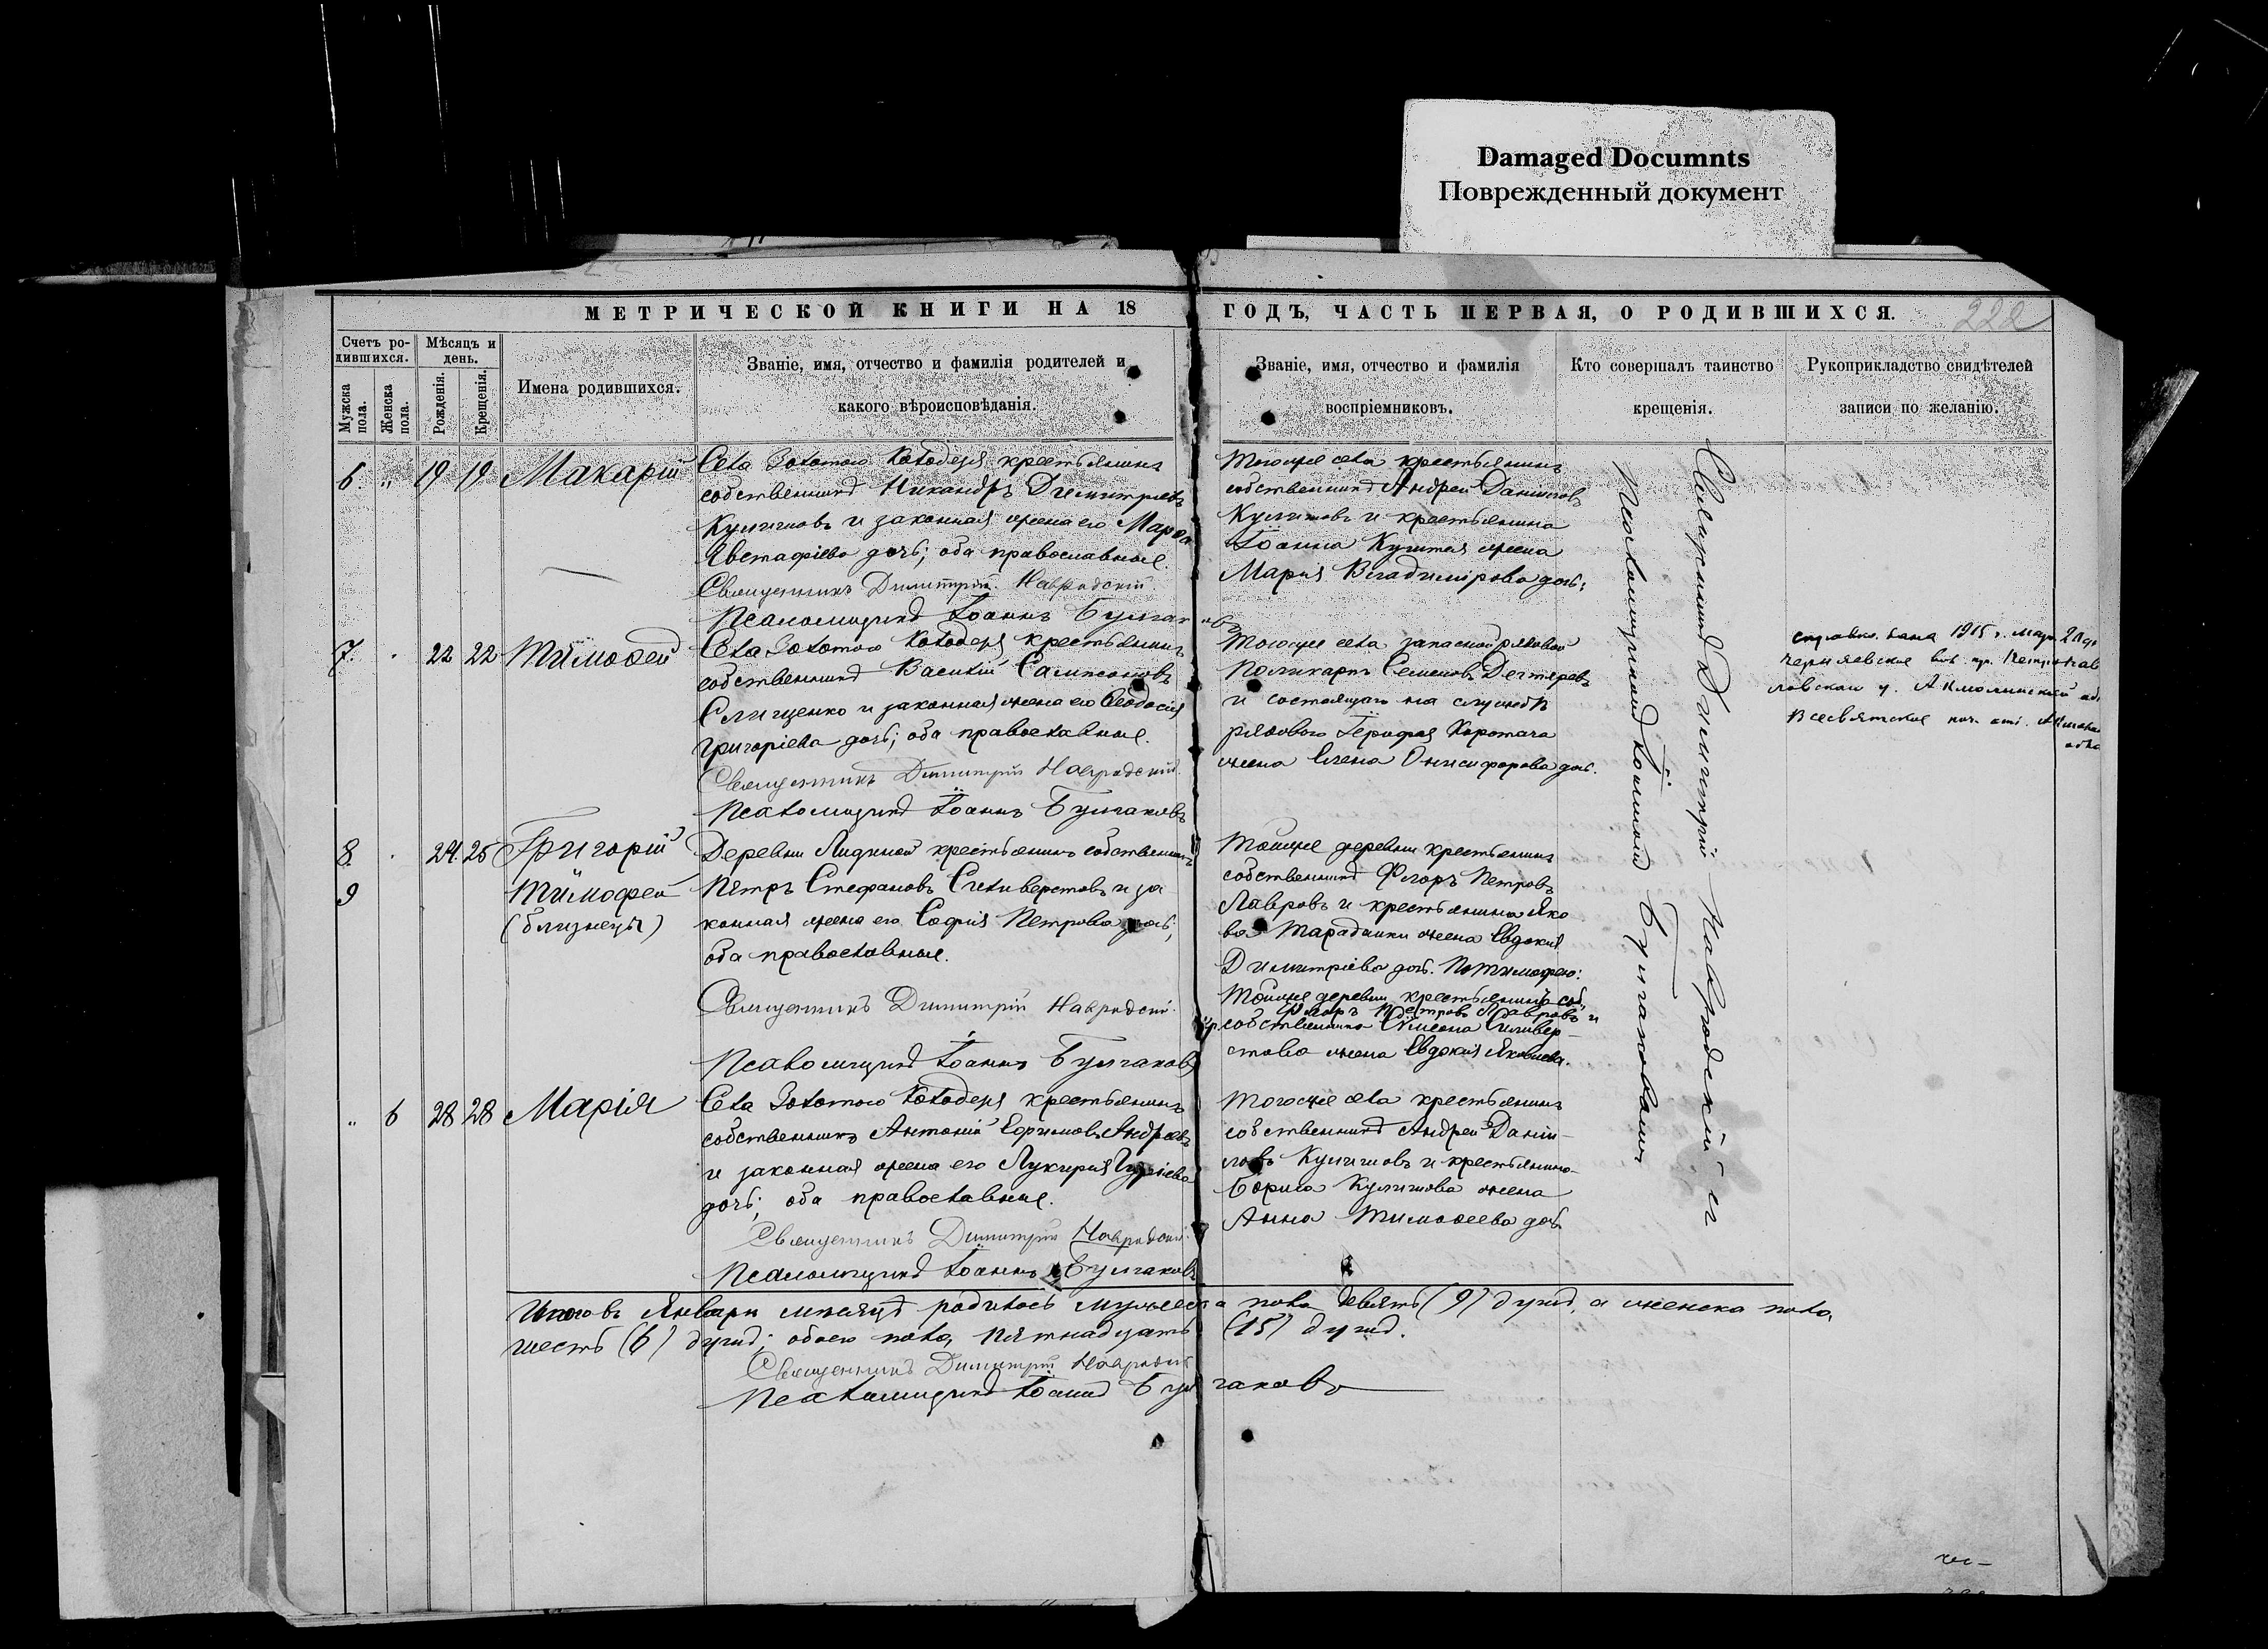 Damaged Documnts
Поврежденный документ
МЕТРИЧЕСКОЙ КНИГИ НА 18
ГОДЪ, ЧАСТЬ ПЕРВАЯ, О РОДИВШИХСЯ.
222
Счетъ ро-
дившихся.
Мужска пола.
Женска пола.
Мѣсяцъ и
день.
Рожденія.
Крещенія.
Имена родившихся.
Званіе, имя, отчество и фамилія родителей и
какого вѣроисповѣданія.
Званіе, имя, отчество и фамилія
воспріемниковъ.
Кто совершалъ таинство
крещенія.
Рукоприкладство свидѣтелей
записи по желанію.
6. " 19 19 Макарій
Села Золотого Колодезя крестьянинъ
собственникъ Никандръ Димитріевъ
Кулишовъ и законная жена его Марѳа
Явстафіева дочь; оба православные.
Священникъ Димитрій Навродскій
Псаломщикъ Іоаннъ Булгаковъ
Тогоже села крестьянинъ
собственникъ Андрей Даніиловъ
Кулишовъ и крестьянина
Іоанна жена
Марія Владимірова дочь.
7. 22 22 Тимоѳей
Села Золотого Колодезя крестьянинъ
собственникъ Василій Сампсоновъ
Слищенко и законная жена его Ѳеодосія
Григоріева дочь; оба православные.
Священникъ Димитрій Навродскій.
Псаломщикъ Іоаннъ Булгаковъ
Тогоже села запасной рядовой
Поликарпъ Семеновъ Дегтяревъ
и состоящаго на службѣ
рядового Коротача
жена Елена Онисифорова дочь.
1915 г. мар.
Акмолинской
Всесвятское
8. 24. 25 Григорій
9 Тимофей
(близнецы)
Деревни крестьянинъ собственникъ
Петръ Стефановъ Силиверстовъ и за
конная жена его Софія Петрова дочь;
оба православные.
Священникъ Димитрій Навродскій.
Псаломщикъ Іоаннъ Булгаковъ
Тойже деревни крестьянинъ
собственникъ Флоръ Петровъ
Лавровъ и крестьянина Яко
ва жена Евдокія
Димитріева дочь. По Тимофею:
Тойже деревни крестьянинъ соб.
Флоръ Петровъ Лавровъ и
собственника Симеона Силивер-
стова жена Евдокія Яковлева.
" 6 28 28 Марія
Села Золотого Колодезя крестьянинъ
собственникъ Антоній Ефимовъ
и законная жена его Лукирія
дочь; оба православные.
Священникъ Димитрій Навродскій.
Псаломщикъ Іоаннъ Булгаковъ
Тогоже села крестьянинъ
собственникъ Андрей Даніи-
ловъ Кулишовъ и крестьянина
Бориса Кулишова жена
Анна Тимоѳеева дочь
Священникъ Димитрій Навродскій и
Псаломщикъ Іоанномъ Булгаковымъ
Итого въ Январѣ мѣсяцѣ родилось мужеска пола девять (9) душъ, а женска пола,
шесть (6) душъ; обоего пола, пятнадцать (15) душъ.
Священникъ Димитрій Навродскій
Псаломщикъ Іоаннъ Булгаковъ